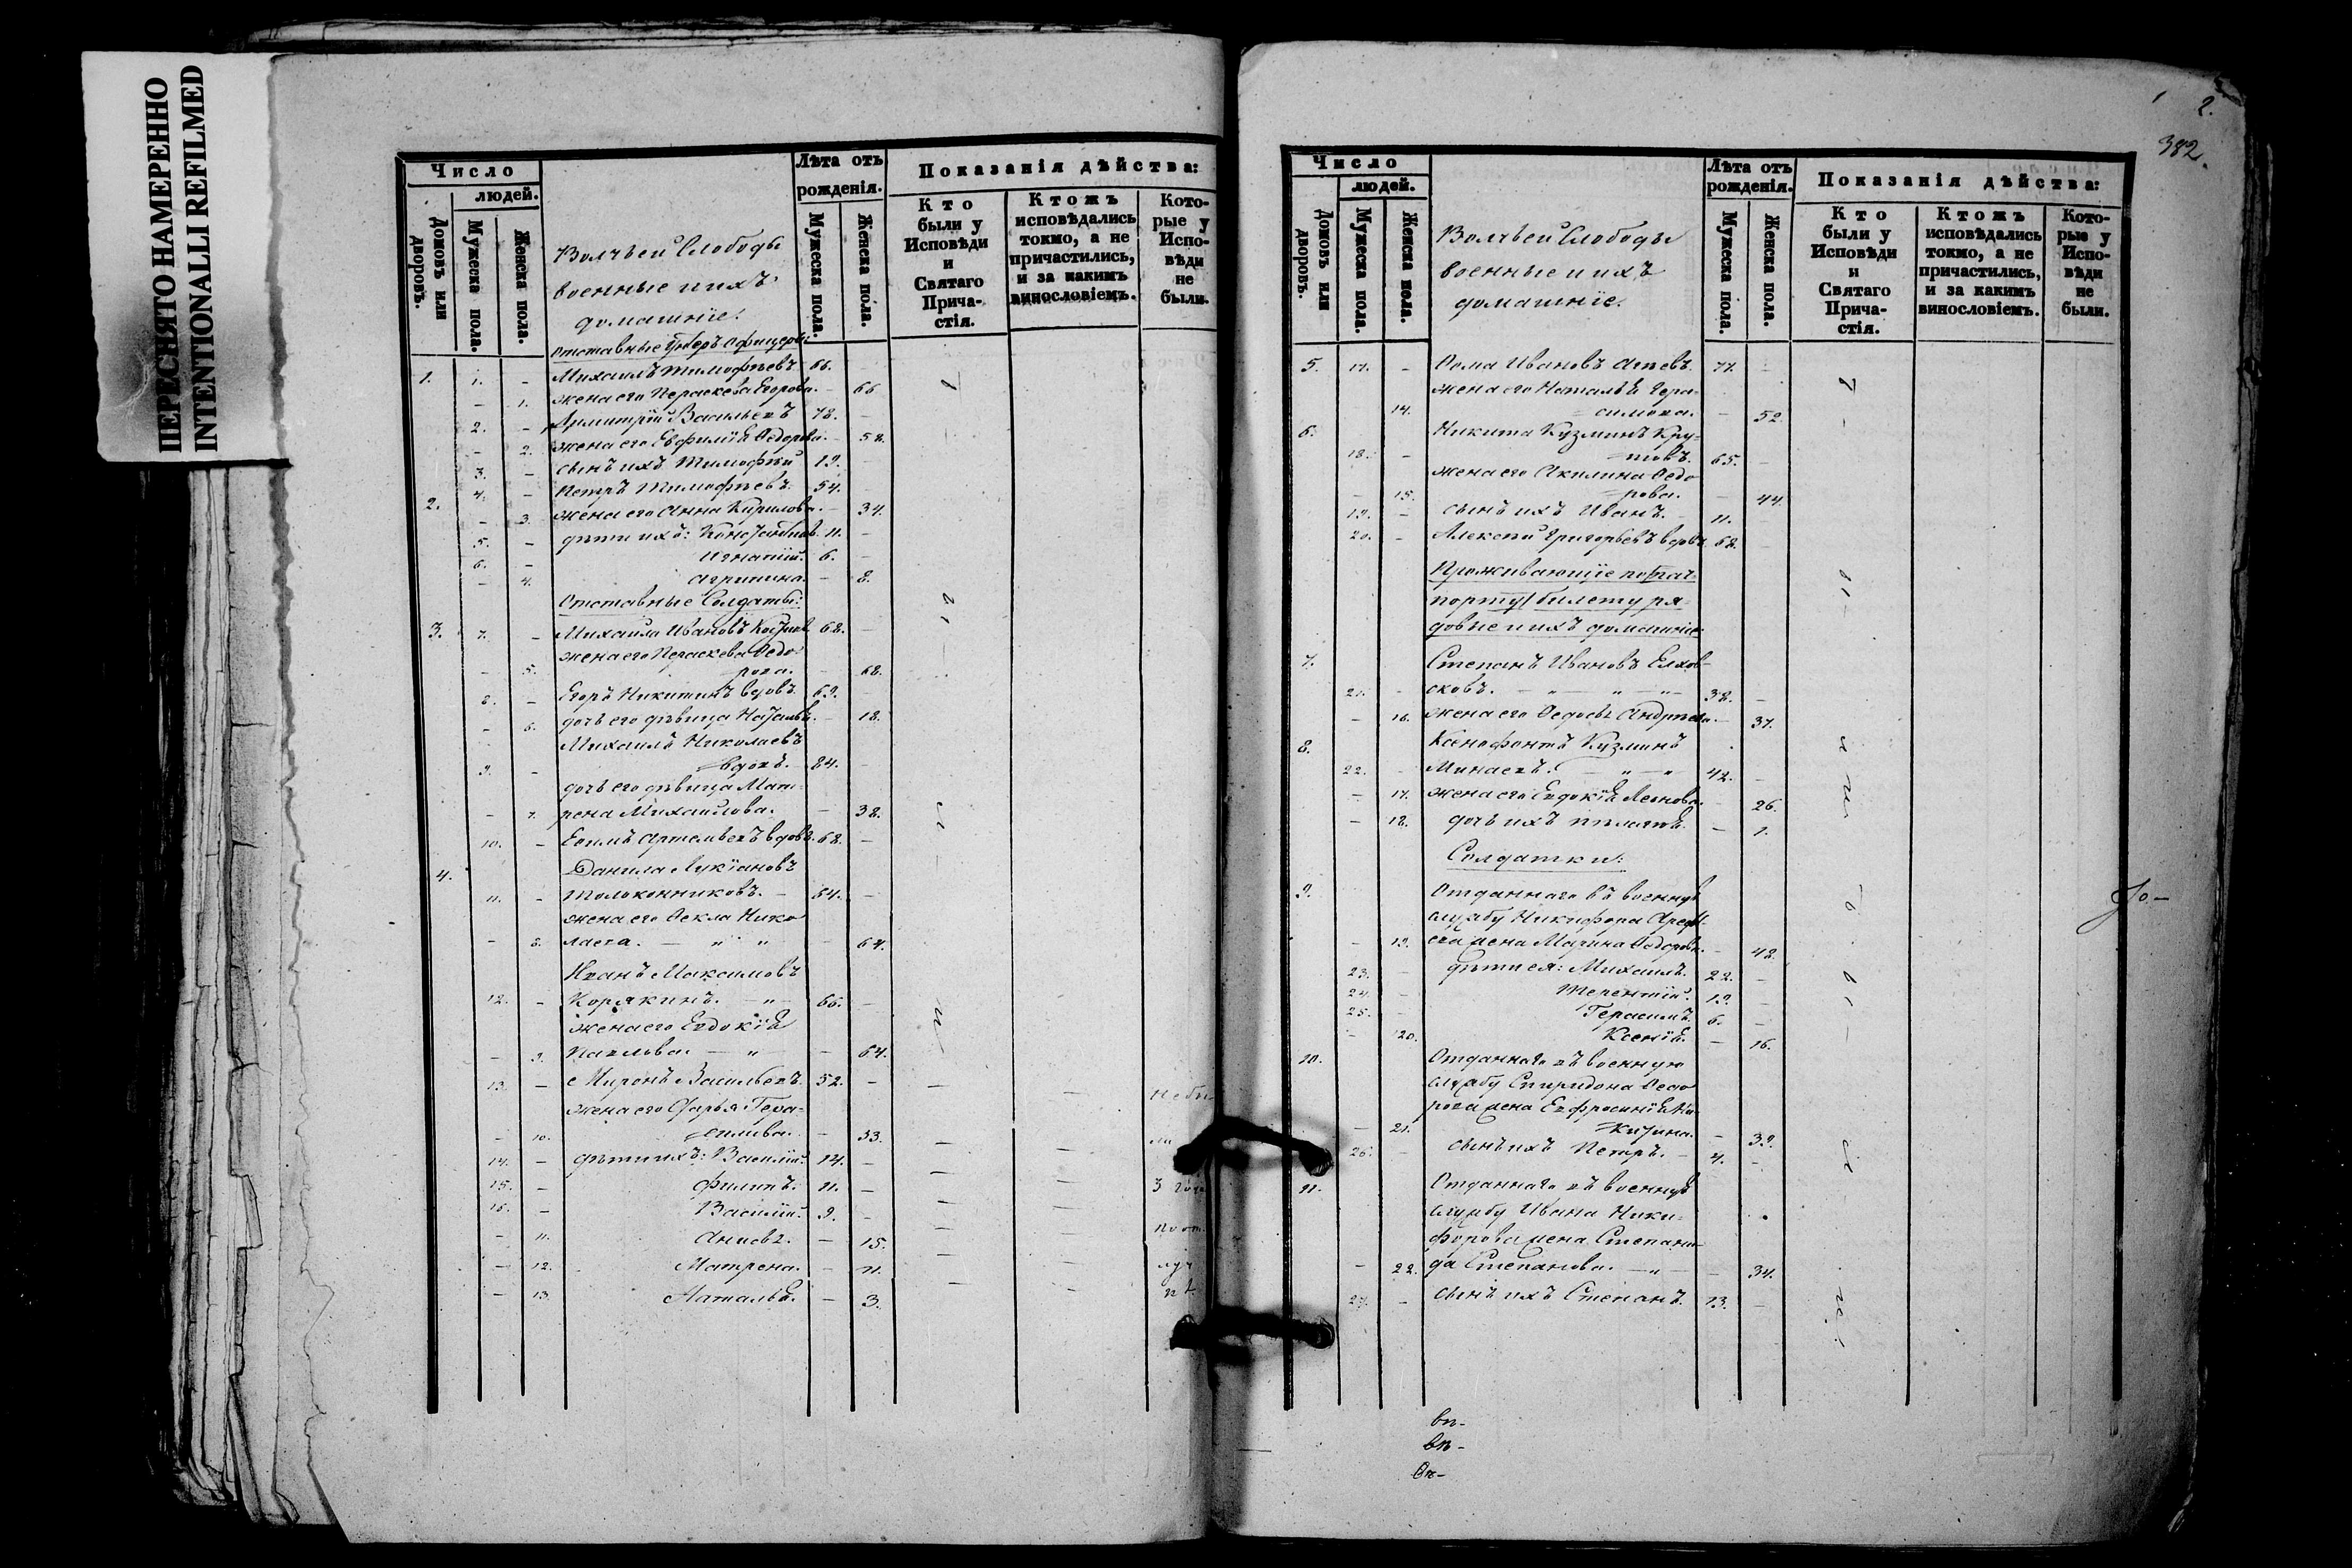 ПЕРЕСНЯТО НАМЕРЕННО
INTENTIONALLI REFILMED
Число
людей.
Домовъ или дворовъ.
Мужеска пола.
Женска пола.
Волчьей Слободы
военные и ихъ
домашніе.
Лѣта отъ
рожденія.
Мужеска пола.
Женска пола.
Показанія дѣйства:
Кто
были у
Исповѣди
и
Святаго
Прича-
стія.
Ктожъ
исповѣдались
токмо, а не
причастились,
и за какимъ
винословіемъ.
Кото-
рые у
Испо-
вѣди
не
были.
Отставные Унтеръ Офицеры:
1. 1. - Михаилъ Тимофѣевъ 66. -
- 1. жена его Параскева Егорова. - 66
2. - Димитрій Васильевъ 78. -
- 2. жена его Евфимія Ѳедорова. - 58.
3. - сынъ ихъ Тимофей 19. -
2. 4. - Петръ Тимофѣевъ. 54. -
- 3. жена его Анна Кирилова. - 34.
5. - дѣти ихъ: 11. -
6. - Игнатій. 6.
- 4. Агрипина. - 8.
Отставные Солдаты:
3. 7. - Михаила Ивановъ 68. -
жена его Параскева Ѳедо-
- 5. рова. - 68.
8. - Егоръ Никитинъ вдовъ. 69. -
- 6. дочь его дѣвица Наталья. - 18.
Михаилъ Николаевъ
9. - вдовъ. 84. -
дочь его дѣвица Мат-
- 7. рена Михайлова. - 38.
10. - Артемьевъ вдовъ. 68. -
4. Данила Лукіановъ
11. - Толоконниковъ. - 64. -
жена его Ѳекла Нико
- 8. лаева. - " " - 64.
Иванъ Максимовъ
12. - Корякинъ. - " - 66. -
жена его Евдокія
- 9. Павлова. - " - - 64.
13. - Миронъ Васильевъ. 52. - - - не бы-
жена его Дарья Гера-
- 10. симова. - 53. - - ли
14. - дѣти ихъ: Василій. 14. - - -
15. - Филипъ. 11. - - - 3 года
16. - Василій. 9. - - - по от-
- 11. Анисья. - 15. - - луч
- 12. Матрена. - 11. - -
- 13. Наталья. - 3. - -
2.
382.
Число
людей.
Домовъ или дворовъ.
Мужеска пола.
Женска пола.
Волчьей Слободы
военные и ихъ
домашніе.
Лѣта отъ
рожденія.
Мужеска пола.
Женска пола.
Показанія дѣйства:
Кто
были у
Исповѣди
и
Святаго
Прича-
стія.
Ктожъ
исповѣдались
токмо, а не
причастились,
и за какимъ
винословіемъ.
Кото-
рые у
Испо-
вѣди
не
были.
5. 17. - Ѳома Ивановъ Агѣевъ. 77. -
жена его Наталья Гера-
14. симова. - 52.
6. Никита Кузминъ Кру-
18. - товъ. 65. -
жена его Акилина Ѳедо
- 15. рова. - 44.
19. - сынъ ихъ Иванъ. - 11. -
20. - Алексѣй Григорьевъ вдовъ. 68. -
Проживающіе по пас-
порту/билету ря-
довые и ихъ домашніе:
7. Степанъ Ивановъ
21. - 38. -
- 16. жена его Ѳедосья Андреева. - 37.
8. Ксенофонтъ Кузминъ
22. - Минаевъ. - " - " 42. -
- 17. жена его Евдокія - 26.
- 18. дочь ихъ Пелагія. - 1.
Солдатки:
9. Отданнаго въ военную
службу Никифора
- 19. жена Марина Ѳедорова. - 42.
23. - дѣти ея: Михаилъ. 22. -
24. - Терентій. 19. -
25. - Герасимъ. 6. -
- 20. Ксенія. - 16.
10. Отданнаго въ военную
службу Спиридона Ѳедо
рова жена Евфросинія Ни-
- 21. китина. - 39.
26. - сынъ ихъ Петръ. - 4. -
11. Отданнаго въ военную
службу Ивана Ники-
форова жена Степани-
- 22. да Степанова. - " - - 34.
27. - сынъ ихъ Степанъ. 13. -